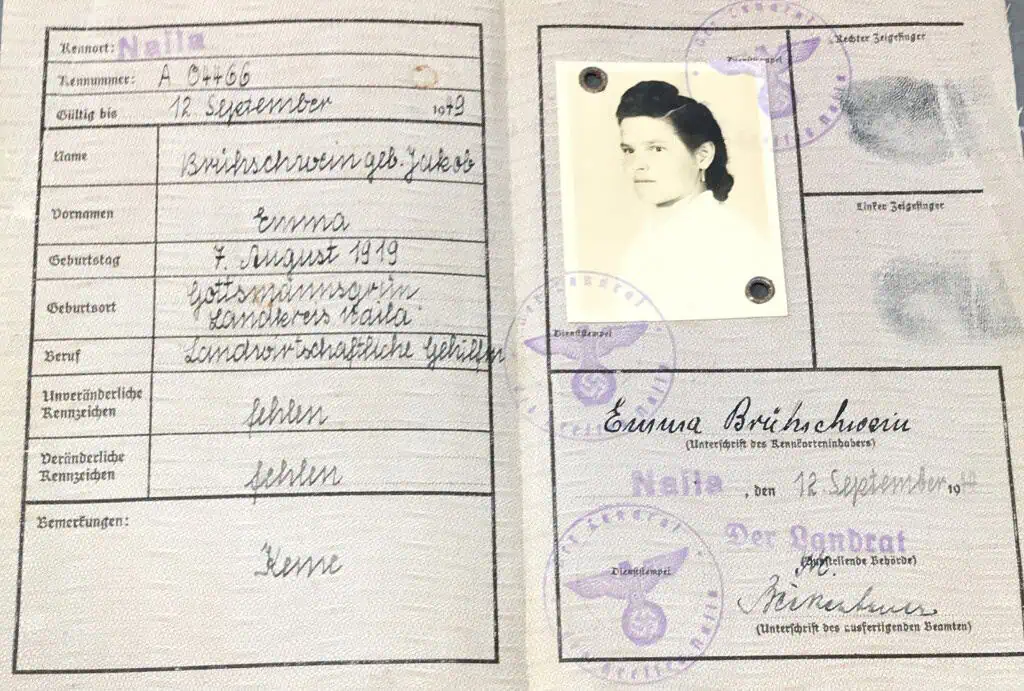 Kennort: Naila
Kennummer: A 04466
Gültig bis 12 September 1949
Name Brühschwein geb. Jakob
Vornamen Emma
Geburtstag 7. August 1919
Geburtsort Gottsmannsgrün
Landkreis Naila
Beruf Landwirtschaftliche Gehilfin
Unveränderliche
Kennzeichen fehlen
Veränderliche
Kennzeichen fehlen
Bemerkungen:
Keine
Der Landrat
Dienststempel
Rechter Zeigefinger
Linker Zeigefinger
Der Landrat
Dienststempel
Emma Brühschwein
(Unterschrift des Kennkarteninhabers)
Naila, den 12 September 19
Der Landrat
(Ausstellende Behörde)
Der Landrat
Dienststempel
(Unterschrift des ausfertigenden Beamten)